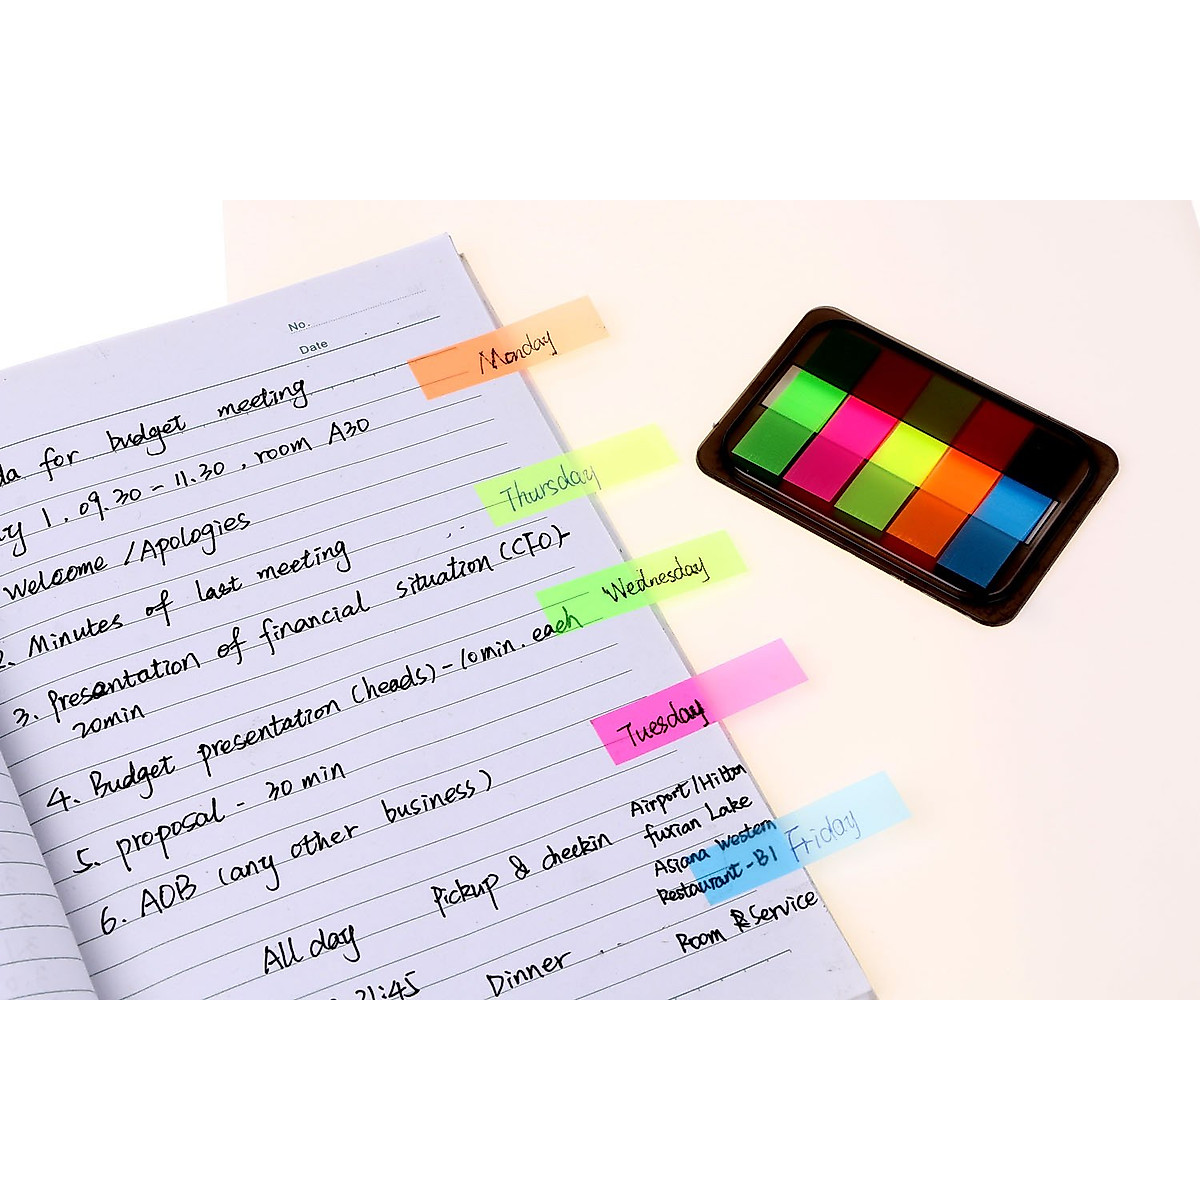 No.
Date
Monday
da for budget meeting
y 1. 09.30 - 11.30, room A30
Thursday
Welcome / Apologies
2. Minutes of last meeting
Wednesday
3. Presantation of financial situation (CFO)-
20min
4. Budget presentation (heads) - 10 min. each
Tuesday
5. proposal - 30 min
6. AOB (any other business)
Pickup & checkin
Airport / Hilton
fuxian Lake
Asiana Western
Restaurant - B1
Friday
All day
21:45 Dinner
Room & Service